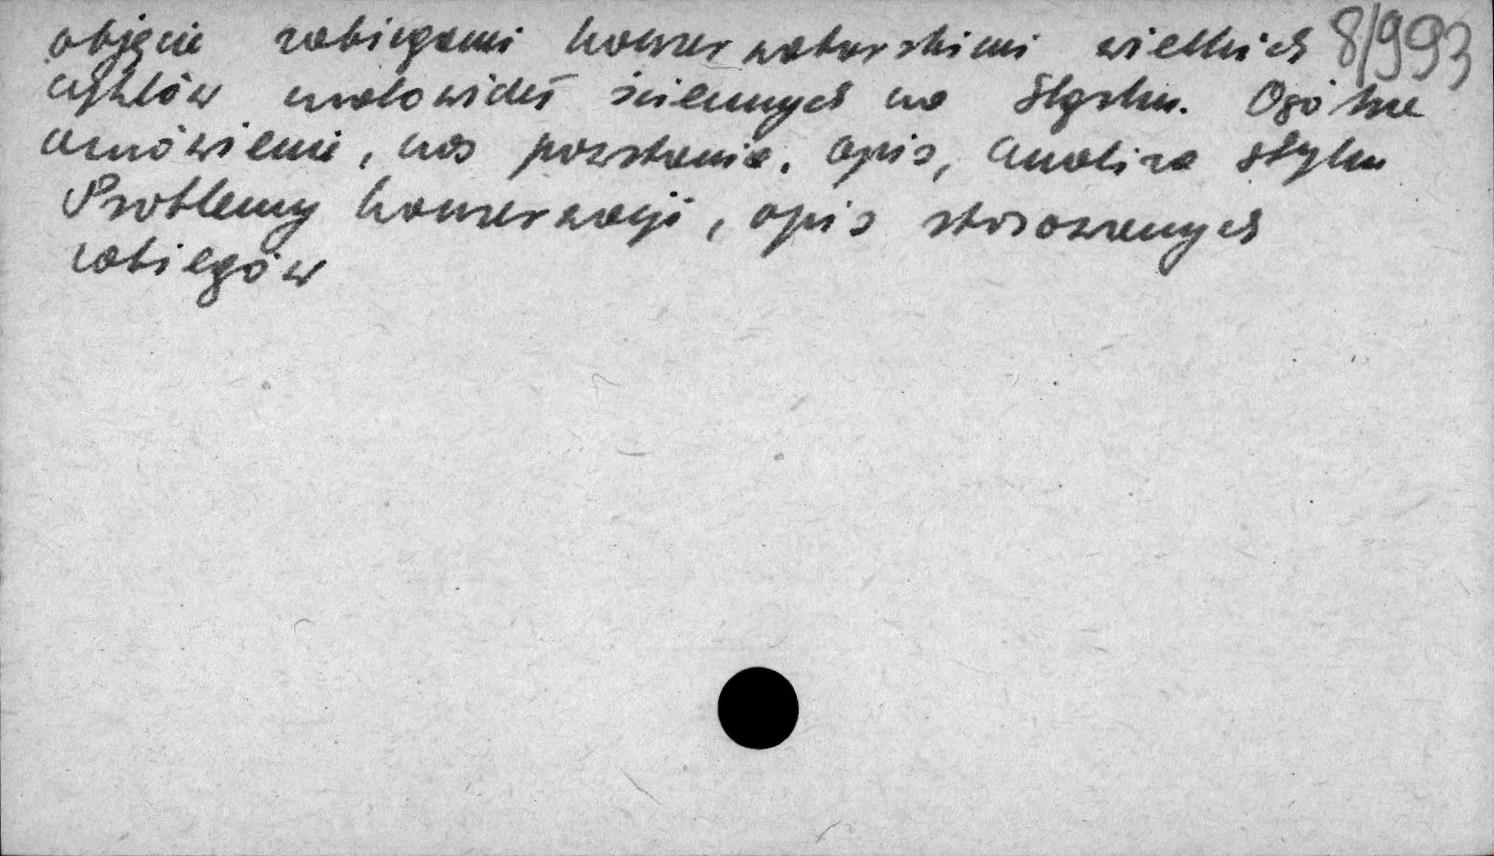 objęcie zabiegami konserwatorskimi wielkich 8/993
cyklów malowideł ściennych na Śląsku. Ogólne
omówienie, czas powstania, opis, analiza stylu
Problemy konserwacji, opis stosowanych
zabiegów